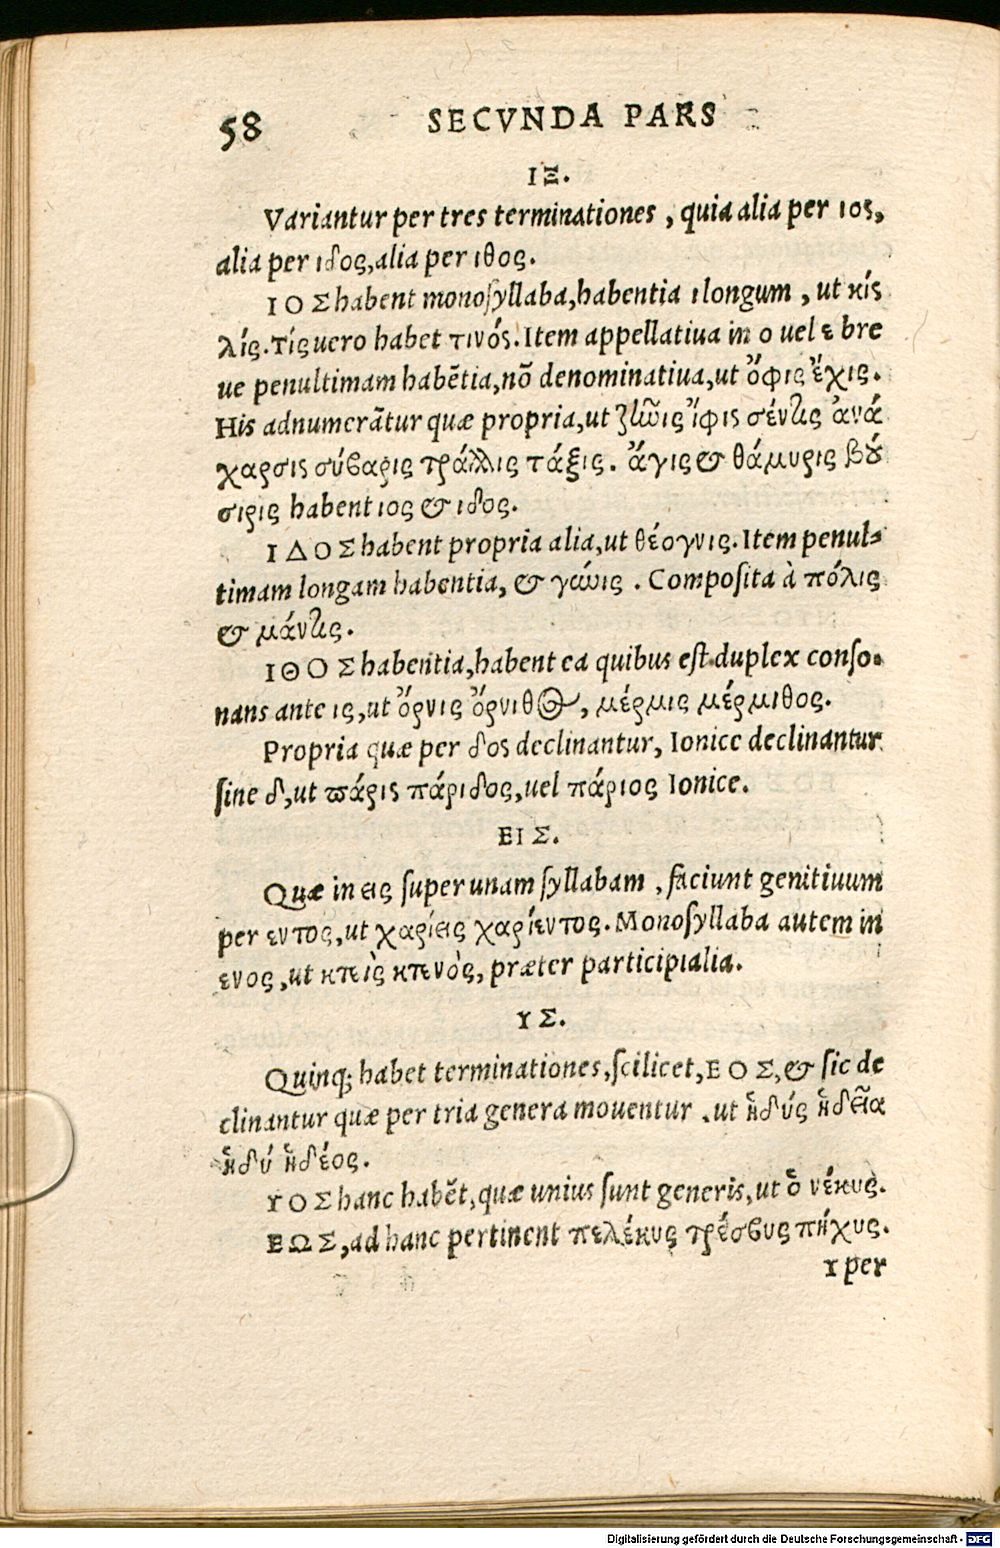 58 SECVNDA PARS
ΙΞ.
Variantur per tres terminationes, quia alia per ιος,
alia per ιδος, alia per ιθος.
ΙΟΣ habent monosyllaba, habentia ι longum, ut κίς
λίς. Τίς uero habet τινός. Item appellatiua in ο uel ε bre
ue penultimam habẽtia, nõ denominatiua, ut ὄφις ἔχις.
His adnumerãtur quæ propria, ut ζεῦις ἴφις σέντις ἀνά
χαρσις σύβαρις τράλλις τάξις. ἄγις & θάμυρις βού
σιρις habent ιος & ιδος.
ΙΔΟΣ habent propria alia, ut θέογνις. Item penul-
timam longam habentia, & γεῦις. Composita à πόλις
& μάντις.
ΙΘΟΣ habentia, habent ea quibus est duplex conso-
nans ante ις, ut ὄρνις ὄρνιθος, μέρμις μέρμιθος.
Propria quæ per δος declinantur, Ionice declinantur
sine δ, ut πάρις πάριδος, uel πάριος Ionice.
ΕΙΣ.
Quæ in εις super unam syllabam, faciunt genitiuum
per εντος, ut χαρίεις χαρίεντος. Monosyllaba autem in
ενος, ut κτεὶς κτενὸς, præter participialia.
ΥΣ.
Quinq; habet terminationes, scilicet, ΕΟΣ, & sic de
clinantur quæ per tria genera mouentur, ut ἡδύς ἡδεῖα
ἡδύ ἡδέος.
ΥΟΣ hanc habẽt, quæ unius sunt generis, ut ὁ νέκυς.
ΕΩΣ, ad hanc pertinent πελέκυς πρέσβυς πήχυς.
Υ per
Digitalisierung gefördert durch die Deutsche Forschungsgemeinschaft - DFG